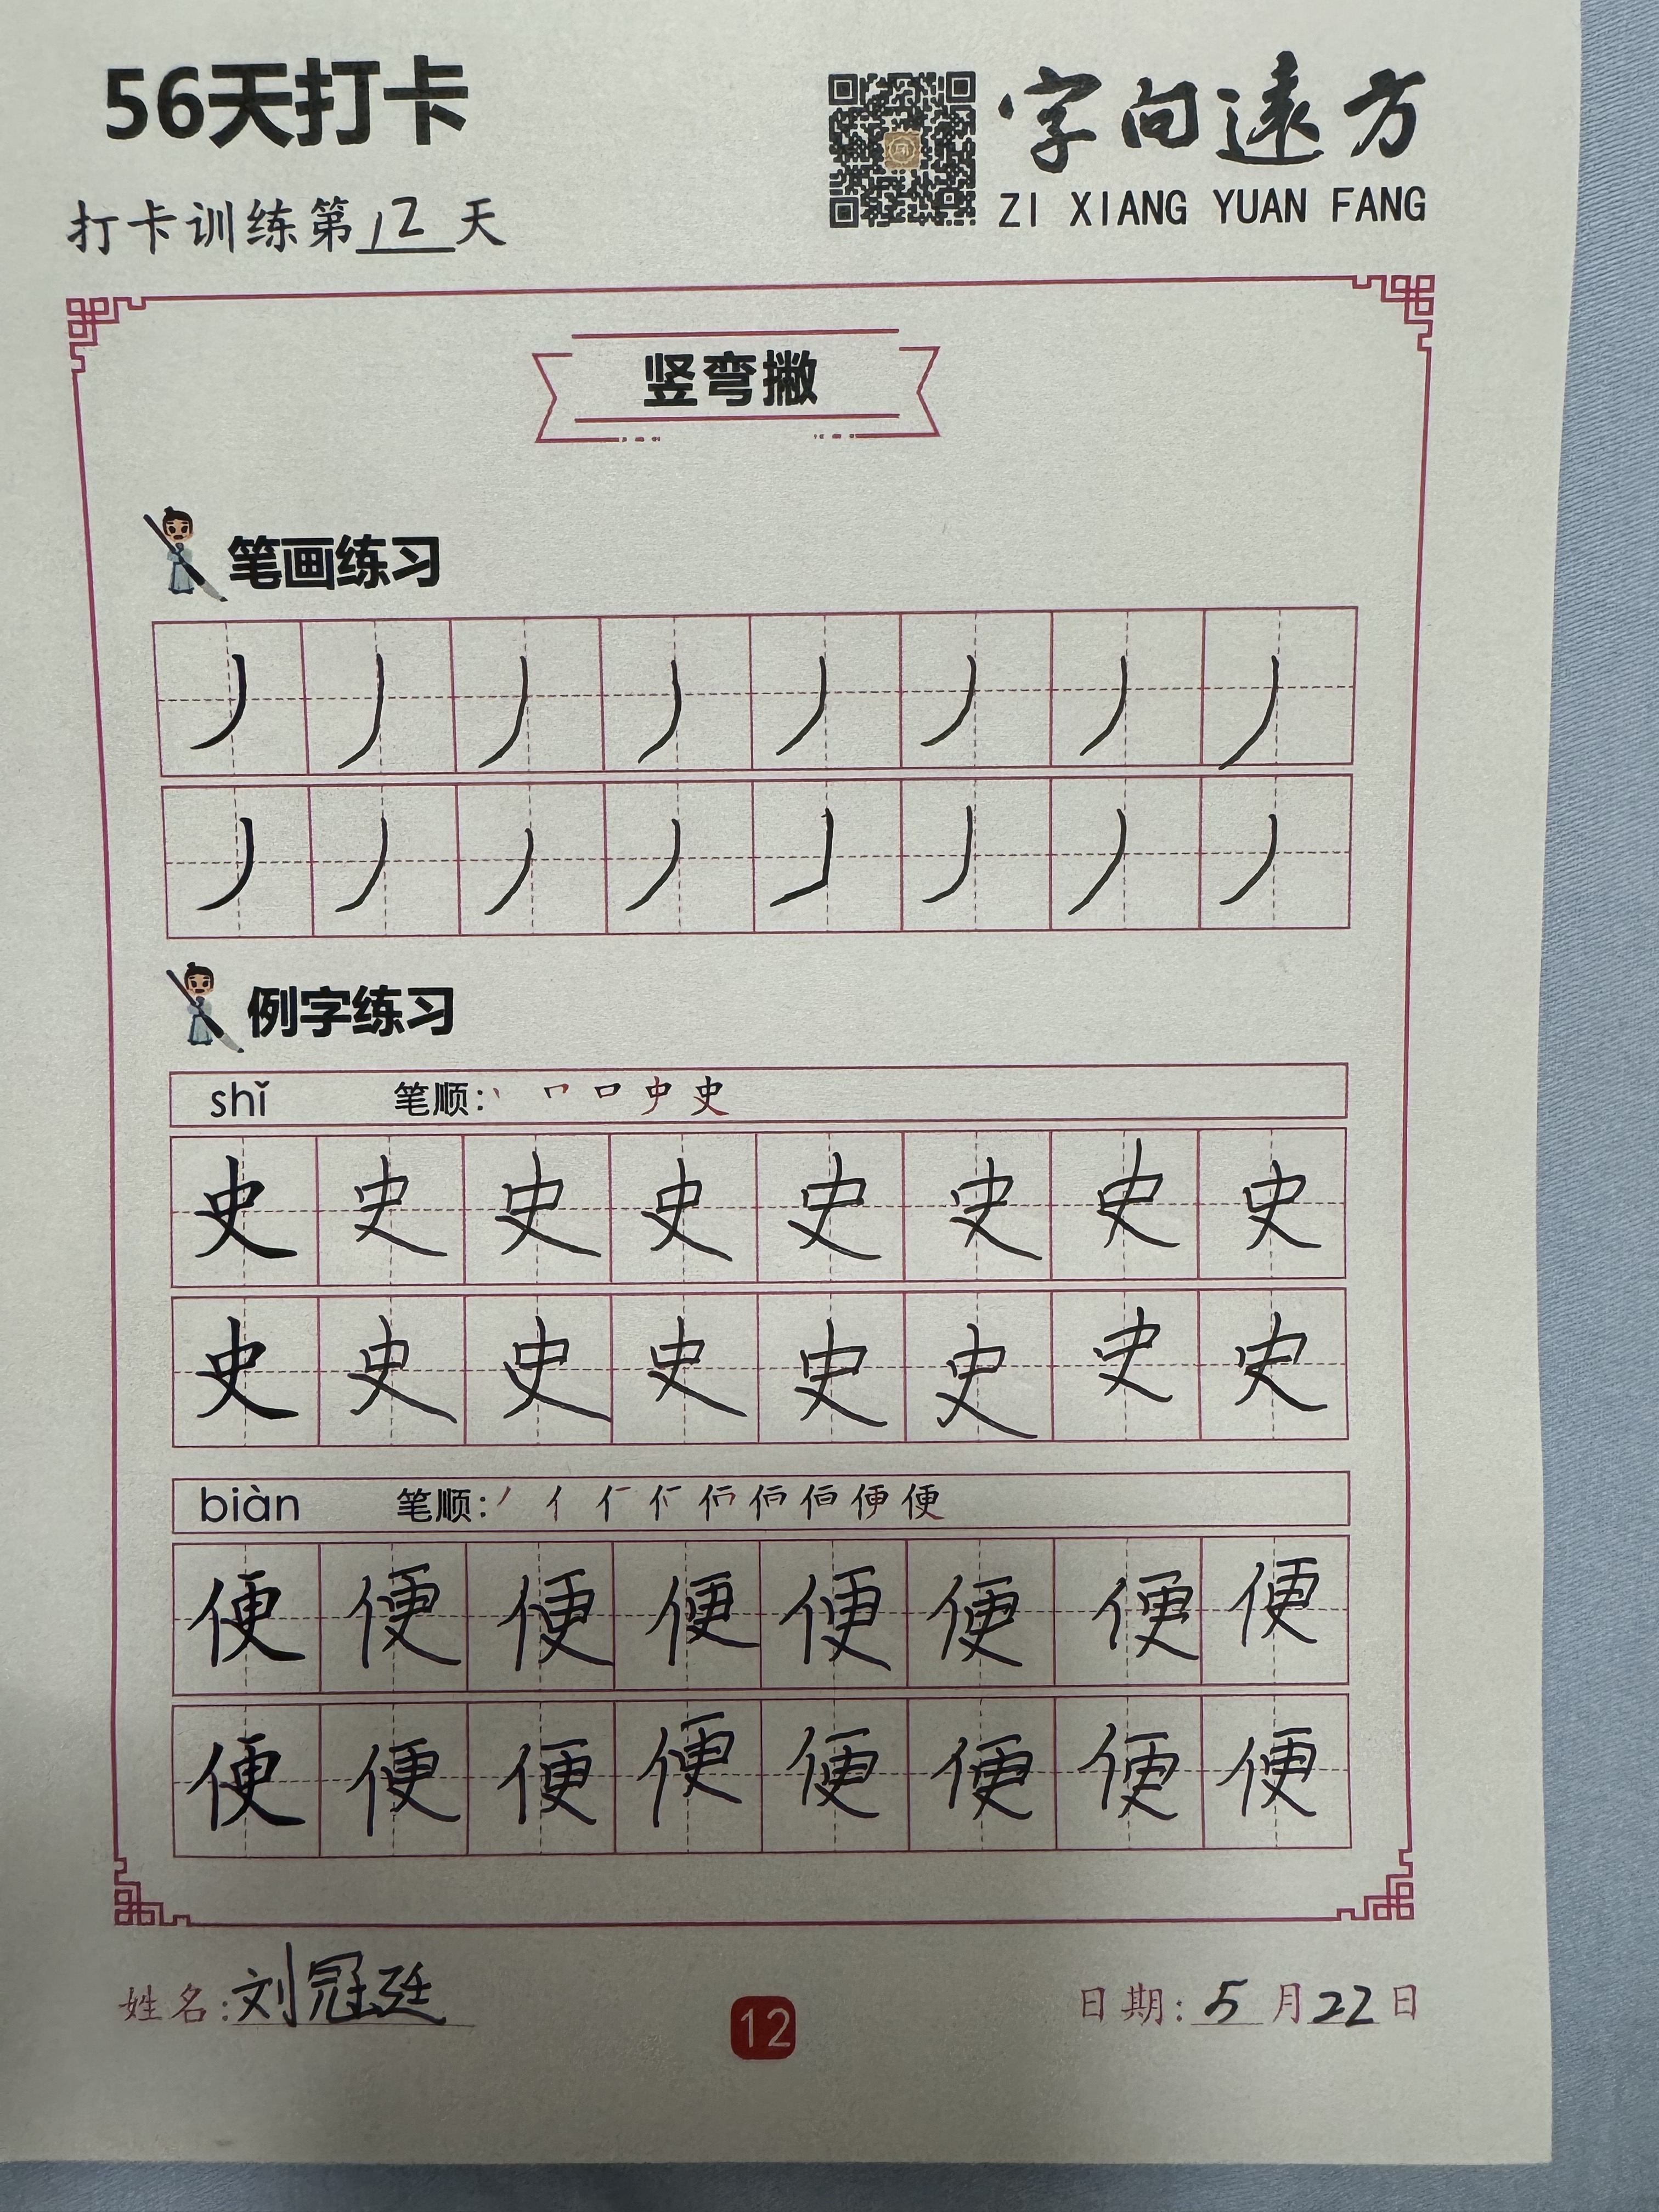 56天打卡
字向遠方
ZI XIANG YUAN FANG
打卡训练第12天
竖弯撇
笔画练习
丿 丿 丿 丿 丿 丿 丿 丿
丿 丿 丿 丿 丿 丿 丿 丿
例字练习
shǐ 笔顺: 丶 𠃍 口 史 史
史 史 史 史 史 史 史 史
史 史 史 史 史 史 史 史
biàn 笔顺: 便
便 便 便 便 便 便 便 便
便 便 便 便 便 便 便 便
姓名:刘冠廷
12
日期: 5月22日